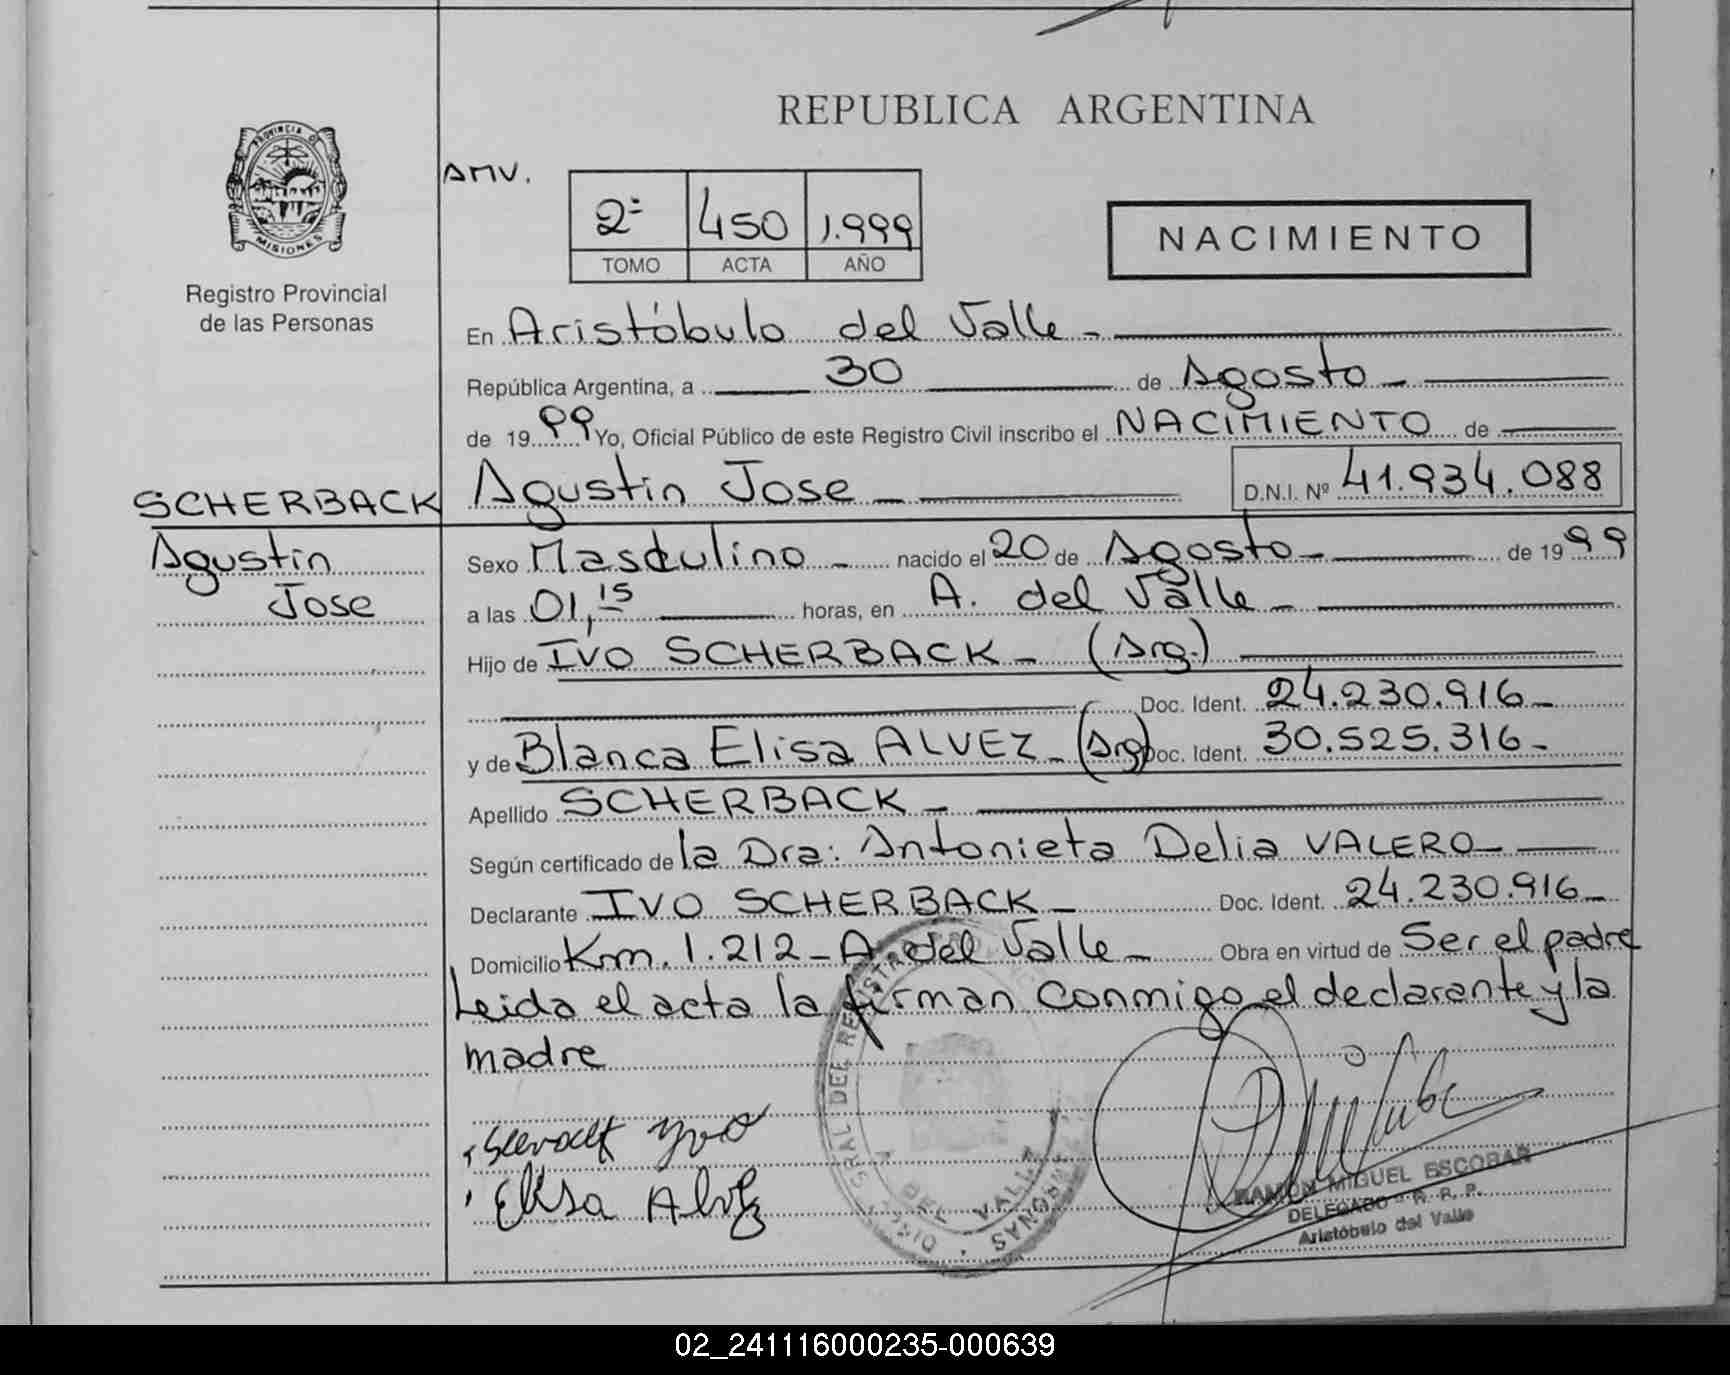 REPUBLICA ARGENTINA
PROVINCIA DE
MISIONES
Registro Provincial
de las Personas
AMV.
2ª 450 1.999
TOMO ACTA AÑO
NACIMIENTO
En Aristóbulo del Valle -
República Argentina, a 30 de Agosto -
de 1999 Yo, Oficial Público de este Registro Civil inscribo el NACIMIENTO de
SCHERBACK
Agustin
Jose
Agustin Jose - D.N.I. Nº 41.934.088
Sexo Masculino - nacido el 20 de Agosto - de 1999
a las 01,15 horas, en A. del Valle -
Hijo de IVO SCHERBACK - (Arg.)
Doc. Ident. 24.230.916 -
y de Blanca Elisa ALVEZ - (Arg) Doc. Ident. 30.525.316 -
Apellido SCHERBACK -
Según certificado de la Dra: Antonieta Delia VALERO -
Declarante IVO SCHERBACK - Doc. Ident. 24.230.916 -
Domicilio Km. 1.212 - A. del Valle - Obra en virtud de Ser el padre
Leida el acta la firman conmigo el declarante y la
madre
Yvo
Elisa Alvez
RAMON MIGUEL ESCOBAR
DELEGADO - R. R. P.
Aristóbulo del Valle
02_241116000235-000639